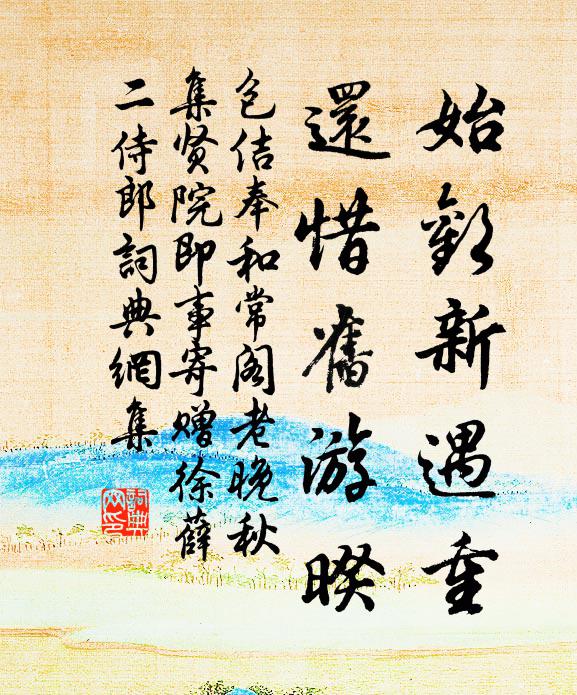 始歡新遇重
還惜舊游暌
包佶奉和常阁老晚秋
集贤院即事寄赠徐薛
二侍郎詞典網集
詞典网印